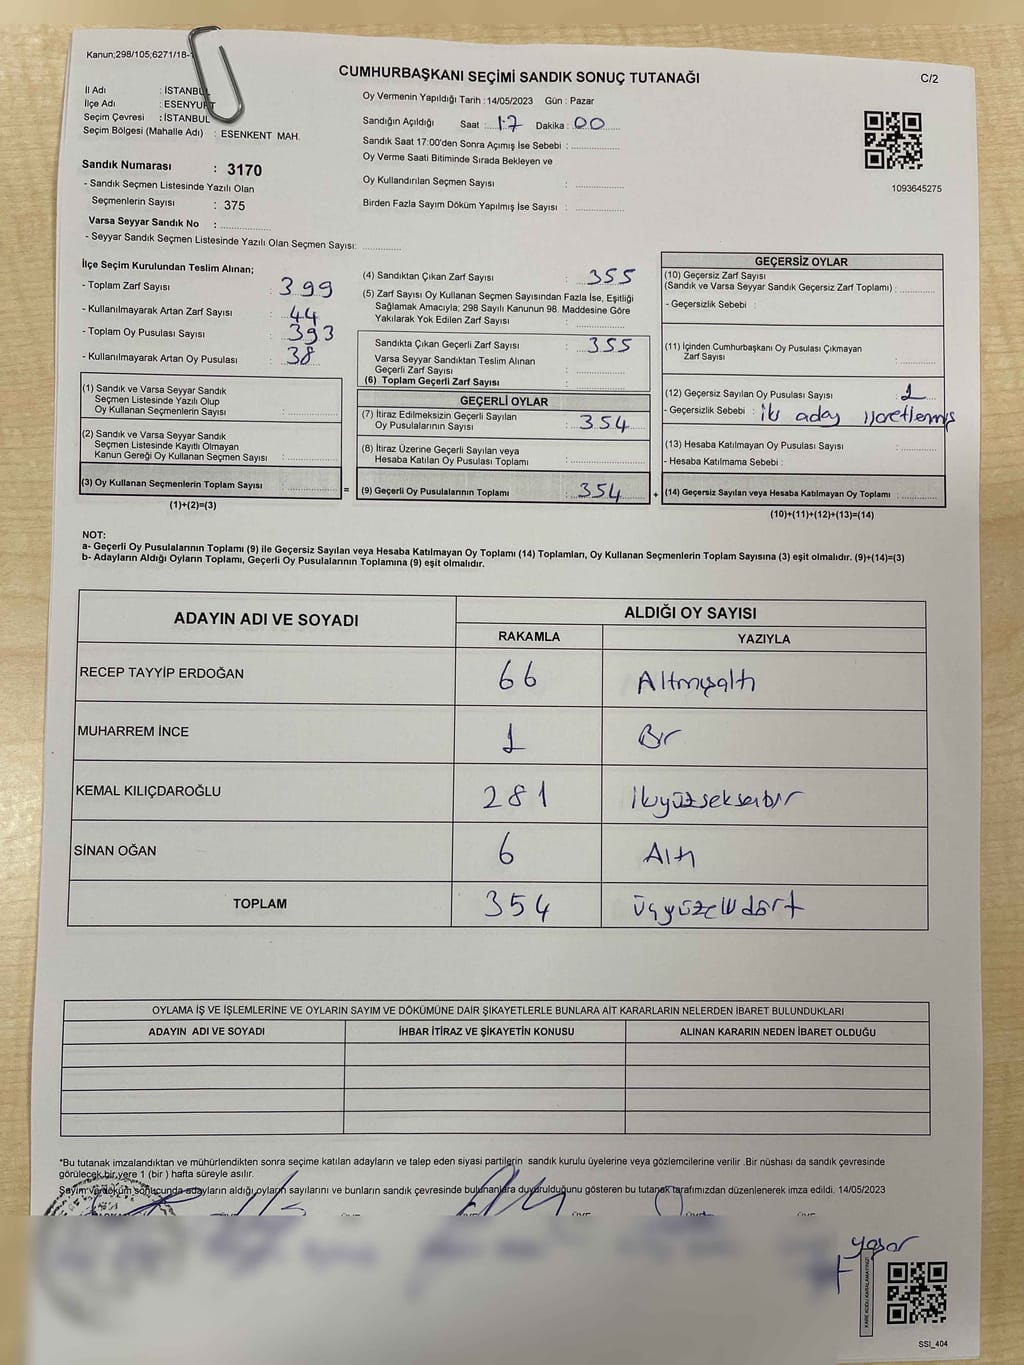 Kanun;298/105;6271/18-
C/2
CUMHURBAŞKANI SEÇİMİ SANDIK SONUÇ TUTANAĞI
İl Adı : İSTANBUL
İlçe Adı : ESENYURT
Seçim Çevresi : İSTANBUL
Seçim Bölgesi (Mahalle Adı) : ESENKENT MAH.
Sandık Numarası : 3170
- Sandık Seçmen Listesinde Yazılı Olan
Seçmenlerin Sayısı : 375
Varsa Seyyar Sandık No :
- Seyyar Sandık Seçmen Listesinde Yazılı Olan Seçmen Sayısı:
Oy Vermenin Yapıldığı Tarih : 14/05/2023 Gün : Pazar
Sandığın Açıldığı Saat : 17 Dakika : 00
Sandık Saat 17:00'den Sonra Açımış İse Sebebi :
Oy Verme Saati Bitiminde Sırada Bekleyen ve
Oy Kullandırılan Seçmen Sayısı :
Birden Fazla Sayım Döküm Yapılmış İse Sayısı :
1093645275
İlçe Seçim Kurulundan Teslim Alınan;
- Toplam Zarf Sayısı : 399
- Kullanılmayarak Artan Zarf Sayısı : 44
- Toplam Oy Pusulası Sayısı : 393
- Kullanılmayarak Artan Oy Pusulası : 38
(1) Sandık ve Varsa Seyyar Sandık
Seçmen Listesinde Yazılı Olup
Oy Kullanan Seçmenlerin Sayısı :
(2) Sandık ve Varsa Seyyar Sandık
Seçmen Listesinde Kayıtlı Olmayan
Kanun Gereği Oy Kullanan Seçmen Sayısı :
(3) Oy Kullanan Seçmenlerin Toplam Sayısı :
(1)+(2)=(3)
=
(4) Sandıktan Çıkan Zarf Sayısı : 355
(5) Zarf Sayısı Oy Kullanan Seçmen Sayısından Fazla İse, Eşitliği
Sağlamak Amacıyla; 298 Sayılı Kanunun 98. Maddesine Göre
Yakılarak Yok Edilen Zarf Sayısı :
Sandıkta Çıkan Geçerli Zarf Sayısı : 355
Varsa Seyyar Sandıktan Teslim Alınan
Geçerli Zarf Sayısı :
(6) Toplam Geçerli Zarf Sayısı :
GEÇERLİ OYLAR
(7) İtiraz Edilmeksizin Geçerli Sayılan
Oy Pusulalarının Sayısı : 354
(8) İtiraz Üzerine Geçerli Sayılan veya
Hesaba Katılan Oy Pusulası Toplamı :
(9) Geçerli Oy Pusulalarının Toplamı : 354
+
GEÇERSİZ OYLAR
(10) Geçersiz Zarf Sayısı
(Sandık ve Varsa Seyyar Sandık Geçersiz Zarf Toplamı) :
- Geçersizlik Sebebi :
(11) İçinden Cumhurbaşkanı Oy Pusulası Çıkmayan
Zarf Sayısı :
(12) Geçersiz Sayılan Oy Pusulası Sayısı : 1
- Geçersizlik Sebebi : iki aday işaretlemiş
(13) Hesaba Katılmayan Oy Pusulası Sayısı :
- Hesaba Katılmama Sebebi :
(14) Geçersiz Sayılan veya Hesaba Katılmayan Oy Toplamı :
(10)+(11)+(12)+(13)=(14)
NOT:
a- Geçerli Oy Pusulalarının Toplamı (9) ile Geçersiz Sayılan veya Hesaba Katılmayan Oy Toplamı (14) Toplamları, Oy Kullanan Seçmenlerin Toplam Sayısına (3) eşit olmalıdır. (9)+(14)=(3)
b- Adayların Aldığı Oyların Toplamı, Geçerli Oy Pusulalarının Toplamına (9) eşit olmalıdır.
ADAYIN ADI VE SOYADI ALDIĞI OY SAYISI
RAKAMLA YAZIYLA
RECEP TAYYİP ERDOĞAN 66 Altmışaltı
MUHARREM İNCE 1 Bir
KEMAL KILIÇDAROĞLU 281 ikiyüzseksenbir
SİNAN OĞAN 6 Altı
TOPLAM 354 üçyüzellidört
OYLAMA İŞ VE İŞLEMLERİNE VE OYLARIN SAYIM VE DÖKÜMÜNE DAİR ŞİKAYETLERLE BUNLARA AİT KARARLARIN NELERDEN İBARET BULUNDUKLARI
ADAYIN ADI VE SOYADI İHBAR İTİRAZ VE ŞİKAYETİN KONUSU ALINAN KARARIN NEDEN İBARET OLDUĞU
*Bu tutanak imzalandıktan ve mühürlendikten sonra seçime katılan adayların ve talep eden siyasi partilerin sandık kurulu üyelerine veya gözlemcilerine verilir .Bir nüshası da sandık çevresinde
görülecek bir yere 1 (bir ) hafta süreyle asılır.
Sayım ve döküm sonucunda adayların aldığı oyların sayılarını ve bunların sandık çevresinde bulunanlara duyurulduğunu gösteren bu tutanak tarafımızdan düzenlenerek imza edildi. 14/05/2023
yaşar
KARE KODU KARALAMAYINIZ
SSİ_404